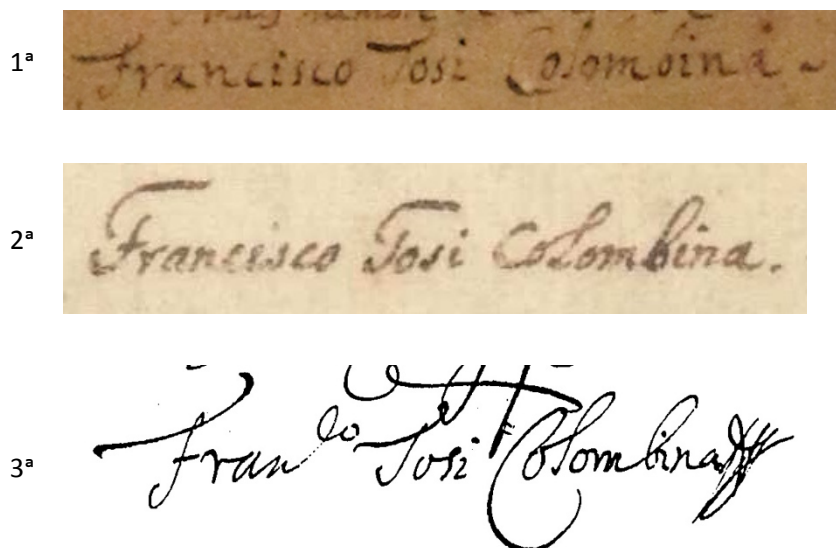 1ª
Francisco Tosi Colombina
2ª
Francisco Tosi Colombina.
3ª
Fran.co Tosi Colombina